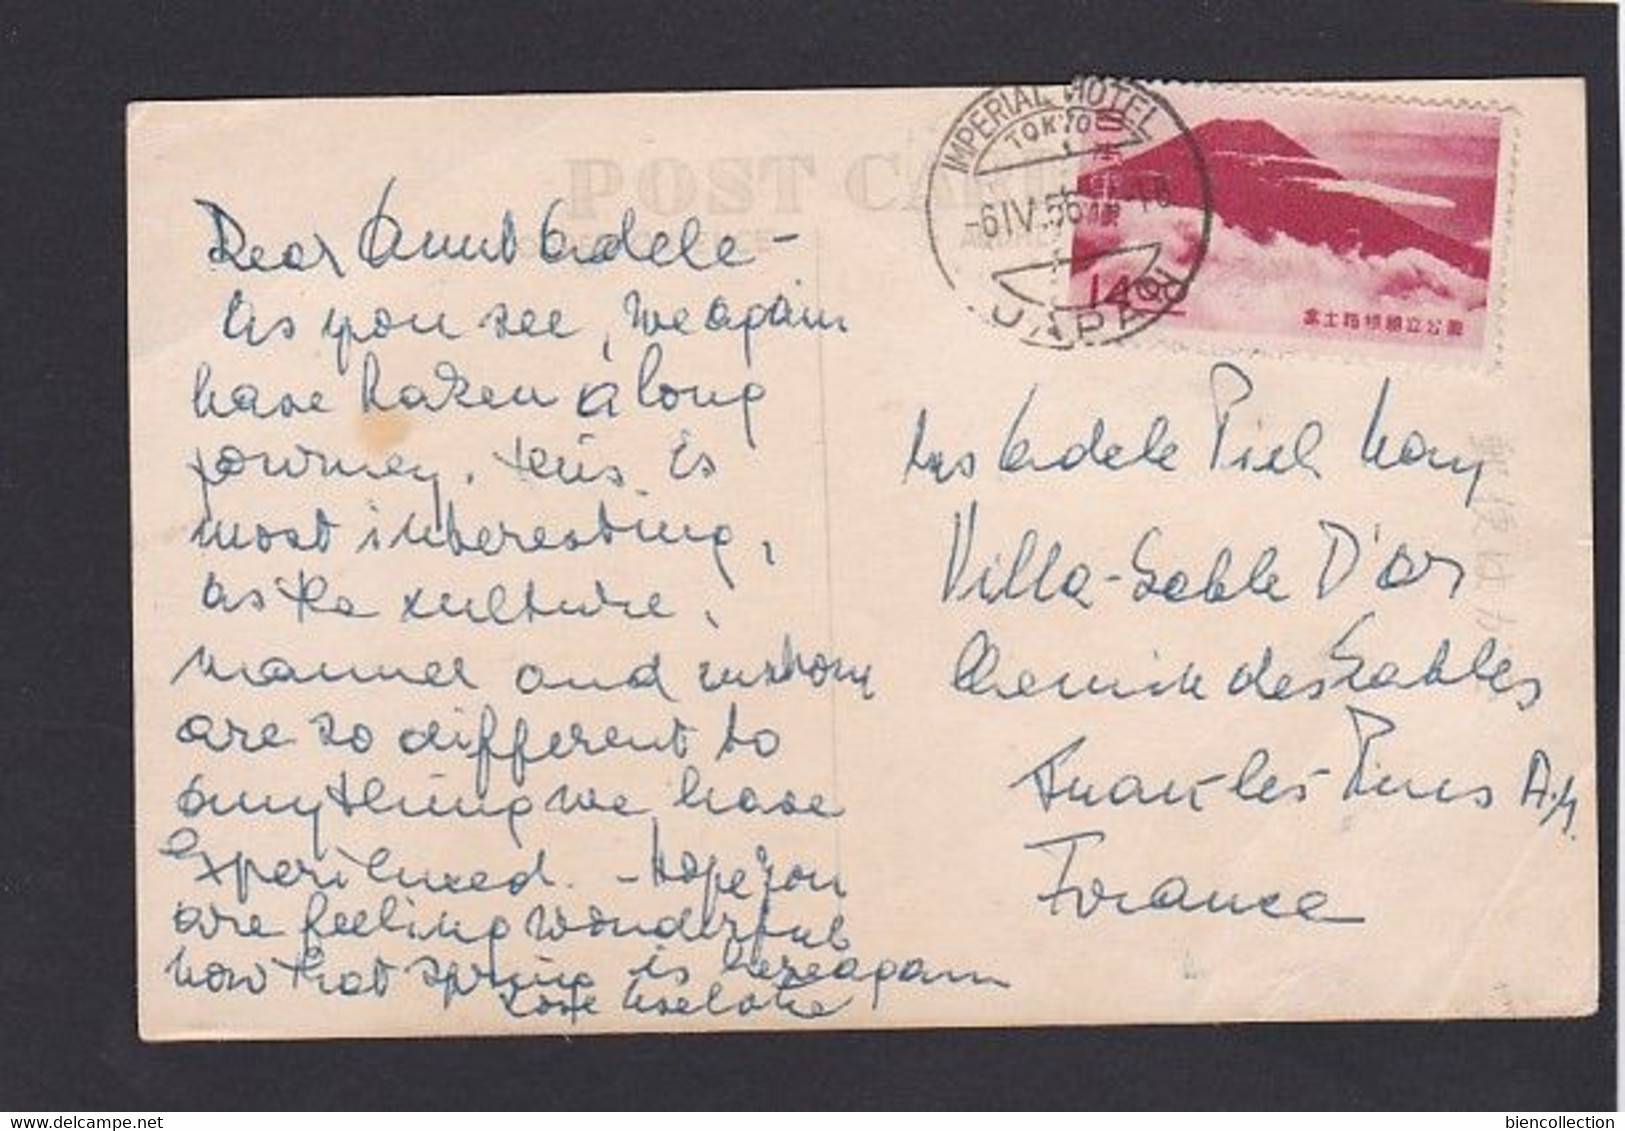 POST CARD
IMPERIAL HOTEL
TOKYO
-6.IV.56
JAPAN
日本郵便
14
富士箱根国立公園
Dear Aunt Adele -
As you see, we again
have taken a long
journey. this is
most interesting,
as the culture,
manner and customs
are so different to
anything we have
experienced. - Hope you
are feeling wonderful
now that spring is here again
Love
Mrs Adele Piel
Villa-Sable D'or
Chemin des Sables
Juan-les-Pins A.M.
France
biencollection